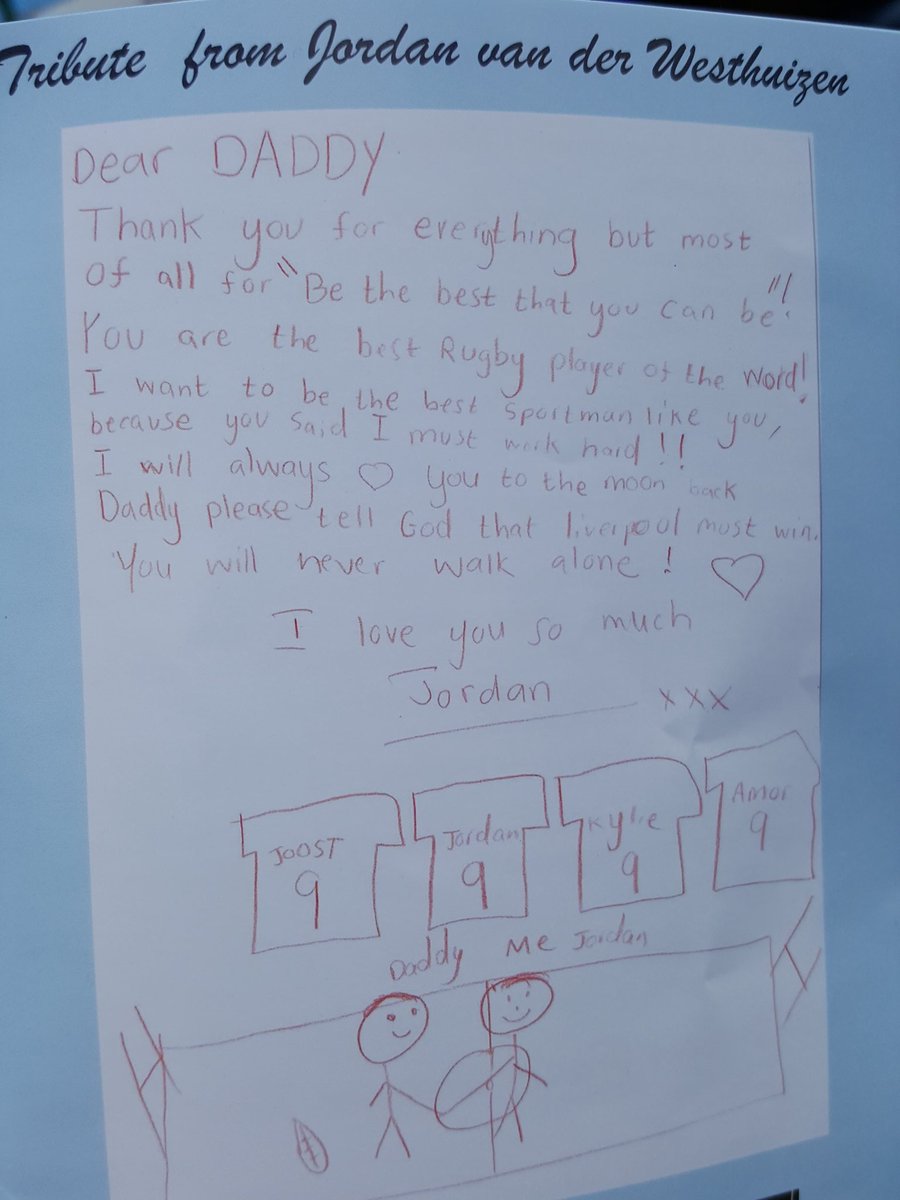 Tribute from Jordan van der Westhuizen
Dear DADDY
Thank you for everything but most
Of all for "Be the best that you can be"!
You are the best Rugby player of the word!
I want to be the best Sportman like you,
because you said I must work hard!!
I will always ♡ you to the moon back
Daddy please tell God that liverpool most win.
You will never walk alone! ♡
I love you so much
Jordan xxx
JOOST Jordan Kylie Amor
9 9 9 9
Daddy Me Jordan